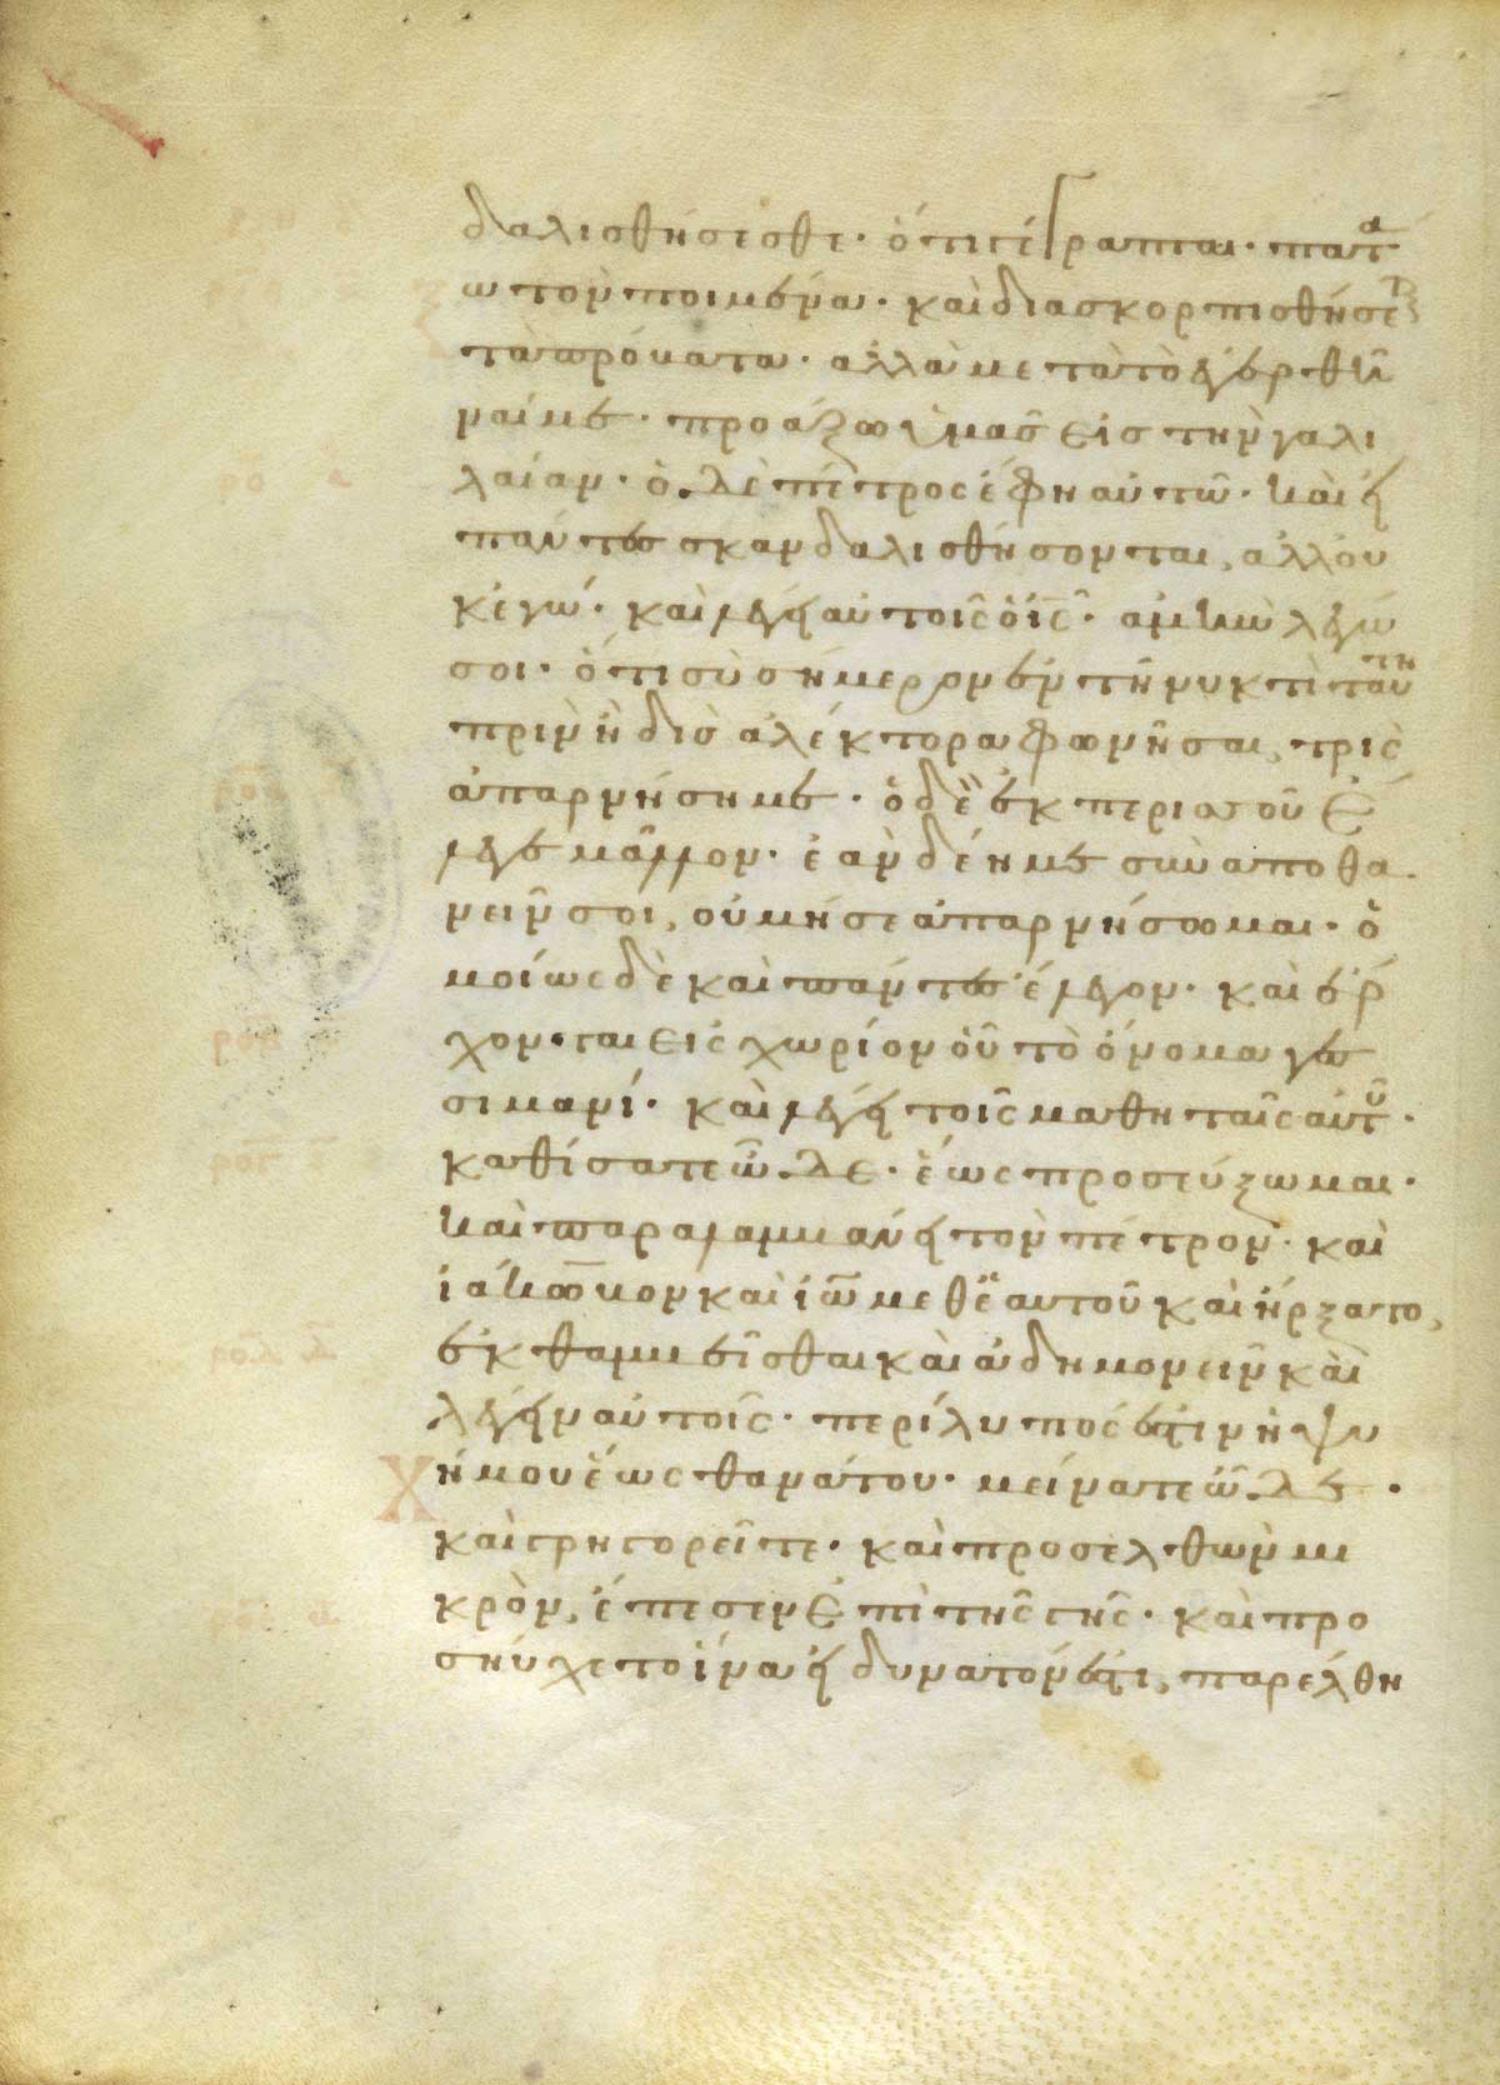 δαλισθήσεσθε· ὅτι γέγραπται· πατάξ
ω τὸν ποιμένα· καὶ διασκορπισθήσεται
τὰ πρόβατα· ἀλλὰ μετὰ τὸ ἐγερθῆ
ναί με· προάξω ὑμᾶς εἰς τὴν γαλι
λαίαν· ὁ δὲ πέτρος ἔφη αὐτῷ· καὶ εἰ
πάντες σκανδαλισθήσονται, ἀλλ' οὐ
κ ἐγώ· καὶ λέγει αὐτοῖς ὁ ἰς· ἀμὴν λέγω
σοι· ὅτι σὺ σήμερον ἐν τῇ νυκτὶ ταύτη
πρὶν ἢ δὶς ἀλέκτορα φωνῆσαι, τρὶς
ἀπαρνήση με· ὁ δὲ ἐκ περισσοῦ ἔ
λεγε μᾶλλον· ἐὰν δέη με συναποθα
νεῖν σοι, οὐ μή σε ἀπαρνήσωμαι· ὁ
μοίως δὲ καὶ πάντες ἔλεγον· καὶ ἔρ
χονται εἰς χωρίον οὗ τὸ ὄνομα γεσ
σιμανί· καὶ λέγει τοῖς μαθηταῖς αὐτοῦ·
καθίσατε ὧδε· ἕως προσεύξωμαι·
καὶ παραλαμβάνει τὸν πέτρον· καὶ
ἰάκωβον καὶ ἰω μεθ' ἑαυτοῦ καὶ ἤρξατο,
ἐκθαμβεῖσθαι καὶ ἀδημονεῖν καὶ
λέγειν αὐτοῖς· περίλυπός ἐστιν ἡ ψυ
χή μου ἕως θανάτου· μείνατε ὧδε·
καὶ γρηγορεῖτε· καὶ προσελθὼν μι
κρὸν, ἔπεσεν ἐπὶ τῆς γῆς· καὶ προ
σηύχετο ἵνα εἰ δυνατόν ἐστι, παρέλθη